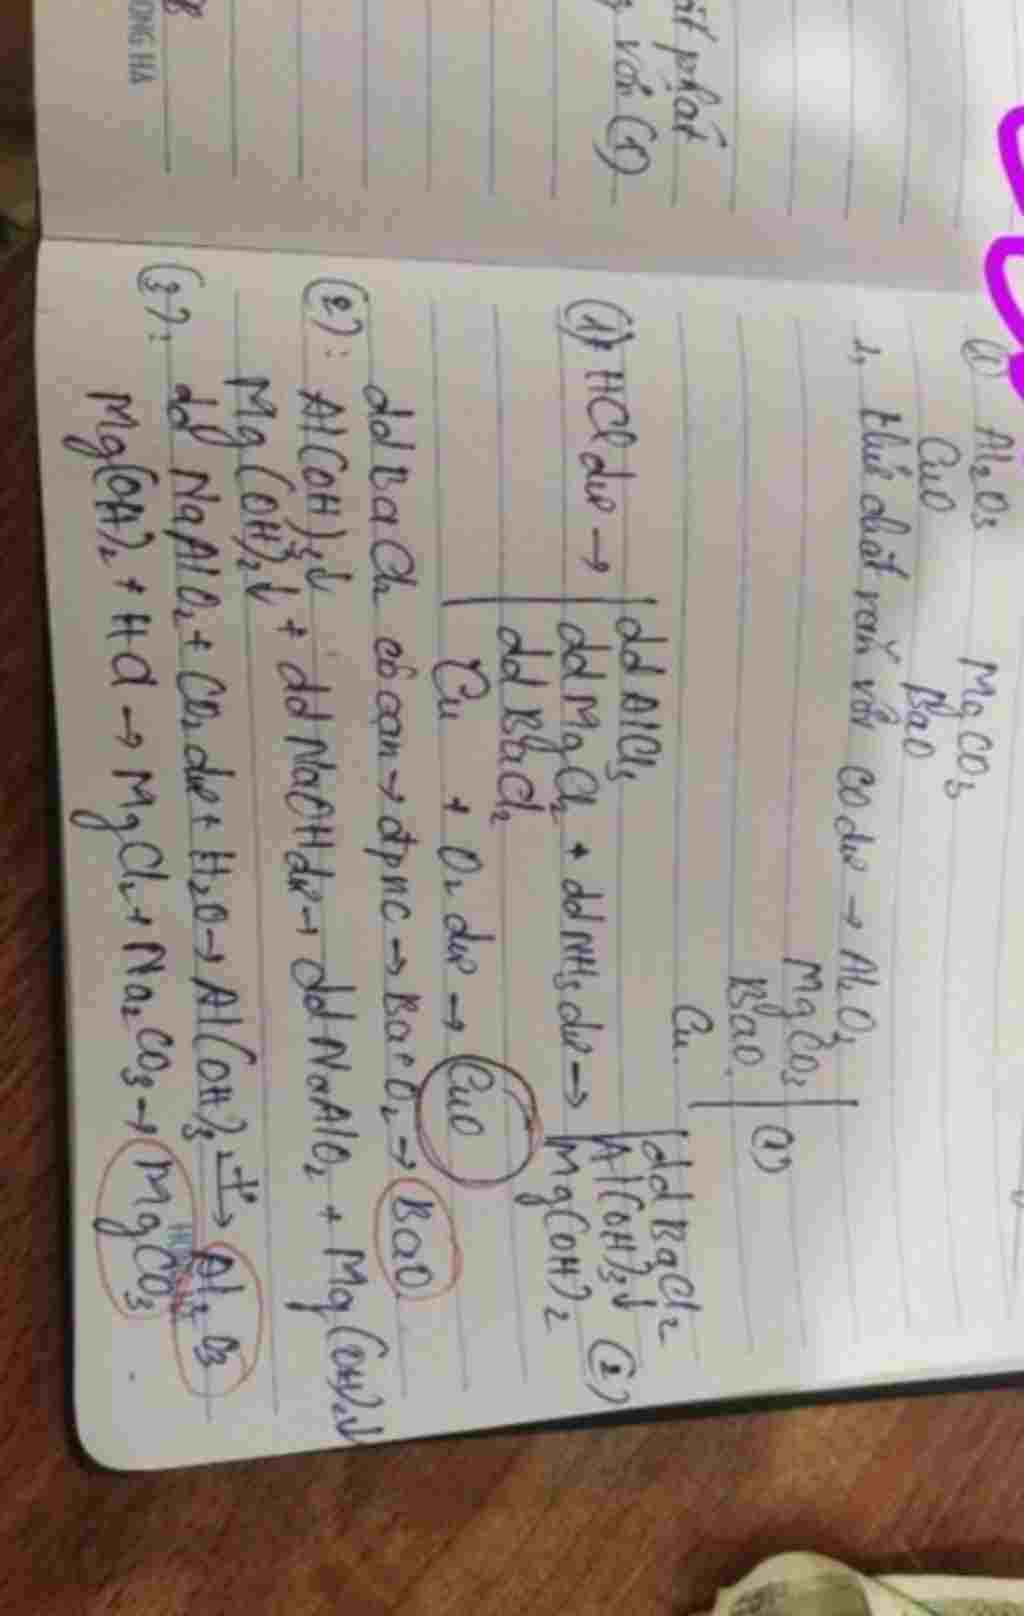 ất phát
với (1)
ONG HA
(1) Al2O3 MgCO3
CuO BaO
1, khử chất rắn với CO dư → Al2O3
MgCO3
BaO (1)
Cu
(1)+ HCl dư → dd AlCl3
dd MgCl2 + dd NH3 dư → dd BaCl2
dd BaCl2 Al(OH)3↓ (2)
Mg(OH)2
Cu + O2 dư → CuO
dd BaCl2 cô cạn → đpnc → BaCO2 → BaO
(2): Al(OH)3↓
Mg(OH)2↓ + dd NaOH dư → dd NaAlO2 + Mg(OH)2↓
(3): dd NaAlO2 + CO2 dư + H2O → Al(OH)3 t° → Al2O3
Mg(OH)2 + HCl → MgCl2 + Na2CO3 → MgCO3